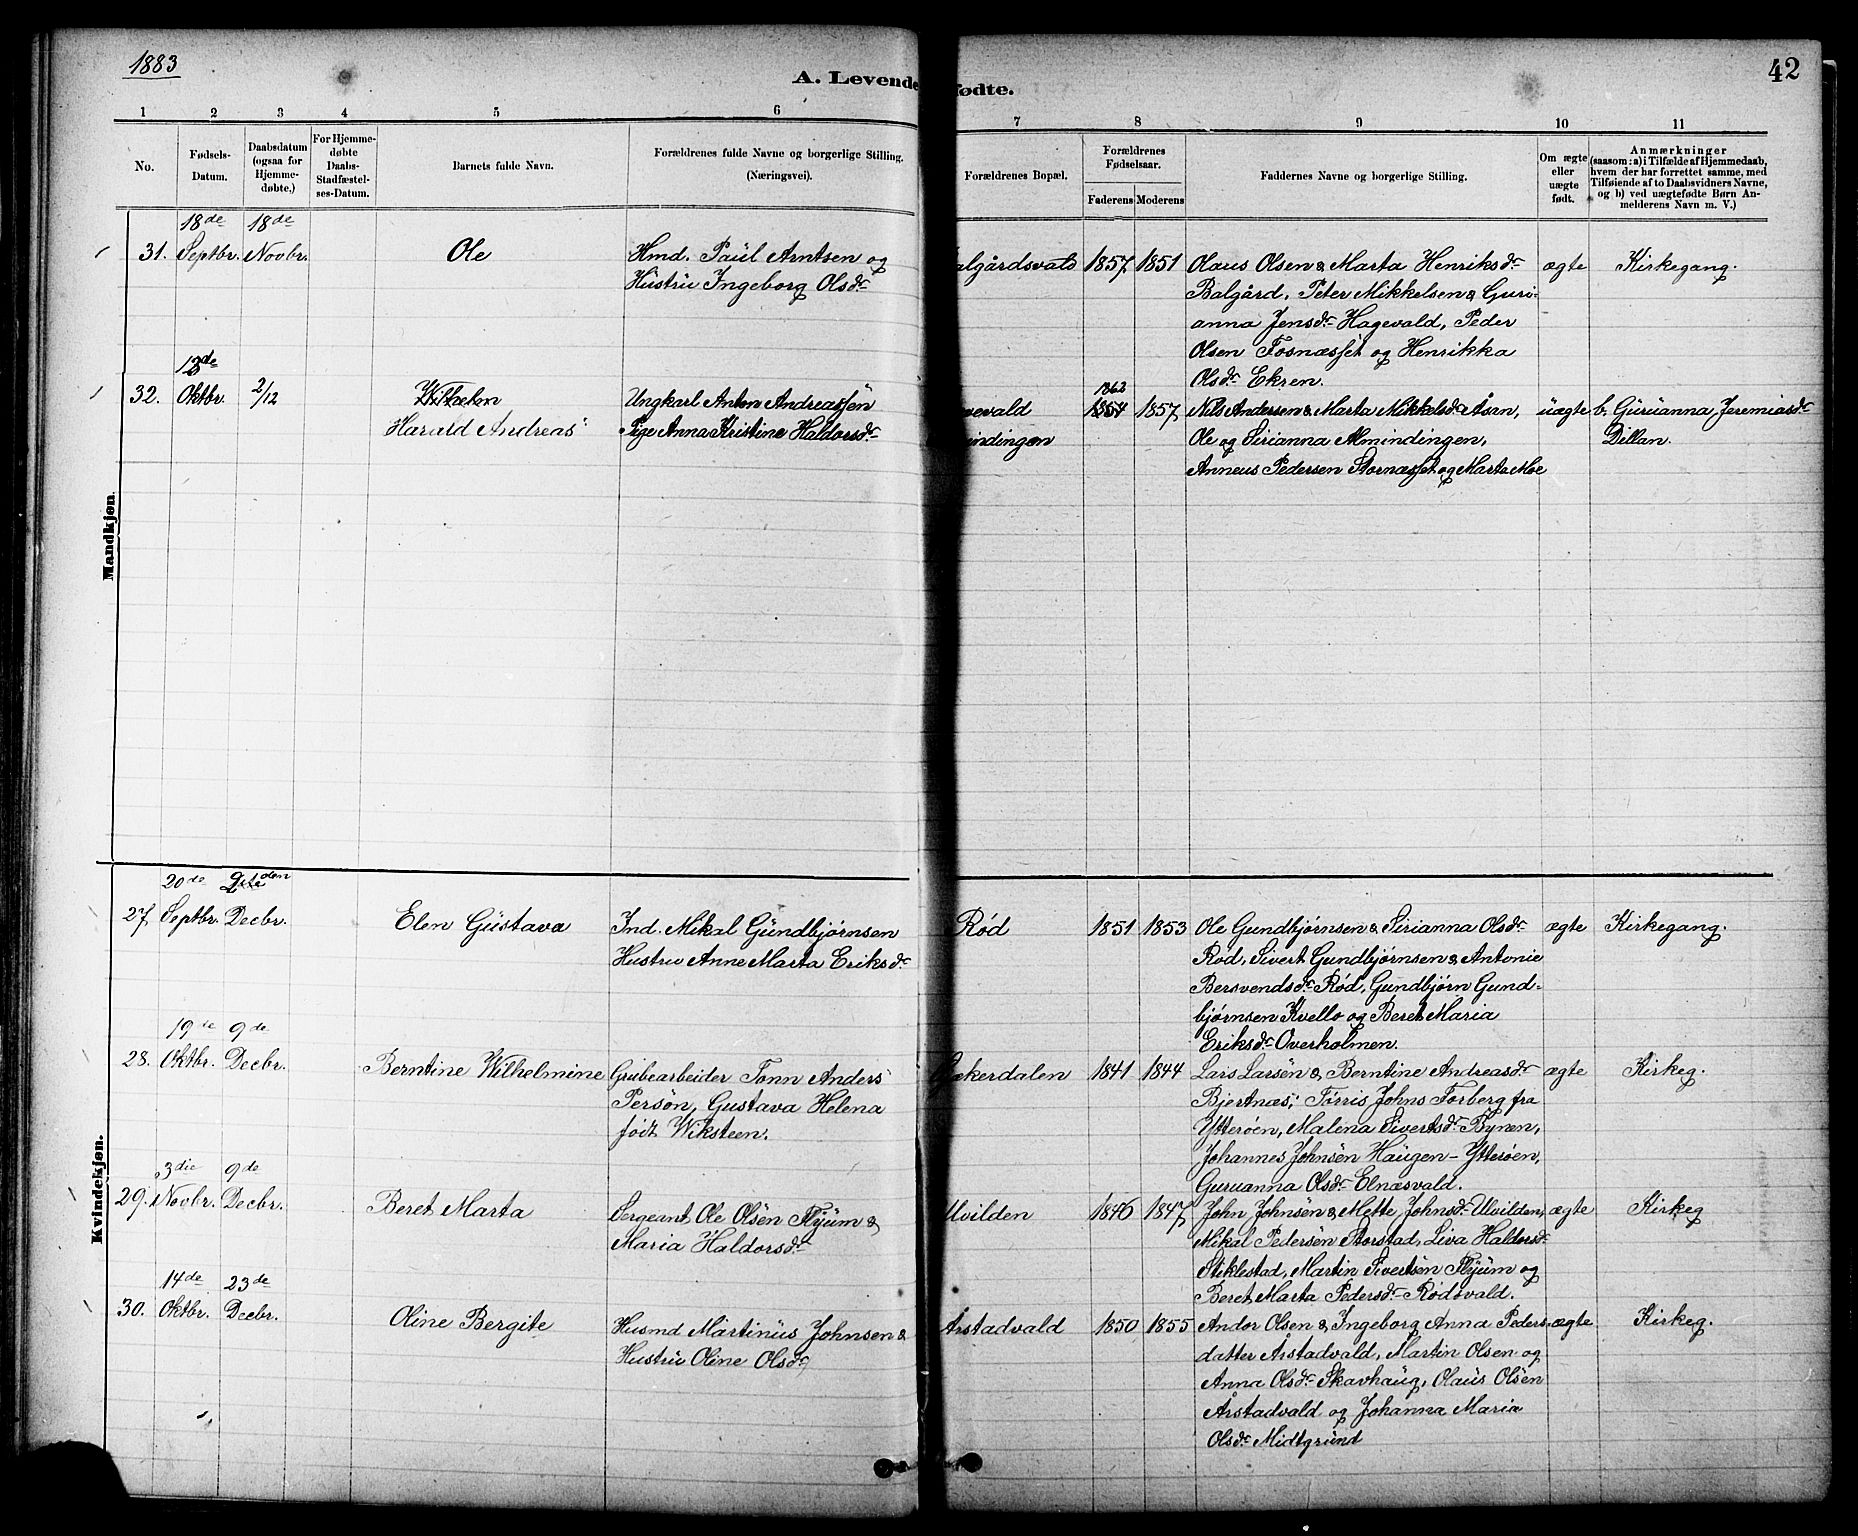 1883
A. Levende fødte.
42
1 2 3 4 5 6 7 8 9 10 11
No.
Fødsels-
Datum.
Daabsdatum
(ogsaa for
Hjemme-
døbte,)
For Hjemme-
døbte
Daabs-
Stadfæstel-
ses-Datum.
Barnets fulde Navn.
Forældrenes fulde Navne og borgerlige Stilling.
(Næringsvei).
Forældrenes Bopæl.
Forældrenes
Fødselsaar.
Faderens Moderens
Faddernes Navne og borgerlige Stilling.
Om ægte
eller
uægte
født.
Anmærkninger
(saasom: a) i Tilfælde af Hjemmedaab,
hvem der har forrettet samme, med
Tilføiende af to Daabsvidners Navne,
og b) ved uægtefødte Børn An-
melderens Navn m. V.)
Mandkjøn.
18de 18de
31. Septbr. Novbr. Ole Hmd. Paul Arntsen og
Hustru Ingeborg Olsdr
algårdsvald 1857 1851 Olaus Olsen & Marta Henriksdr ægte Kirkegang.
Balgård, Peter Mikkelsen & Guri-
anna Jensdr Hagevald, Peder
Olsen Fosnæsset og Henrikka
Olsdr Ekren.
13de
32. Oktbr. 2/12 Wilhelm
Harald Andreas
Ungkarl Anton Andreassen
Pige Anna Kristine Haldorsdr
evald
indingen
1862
1854 1857 Nils Andersen & Marta Mikkelsdr Åsan, uægte b. Gurianna Jeremiasdr
Ole og Sirianna Almindingen, Dillan.
Anneus Pedersen Stornæsset og Marta Moe
Kvindekjøn.
20de 2den
27. Septbr. Decbr. Elen Gustava Ind. Mikal Gundbjørnsen
Hustru Anne Marta Eriksdr
Rød 1851 1853 Ole Gundbjørnsen & Sirianna Olsdr ægte Kirkegang.
Rød, Sivert Gundbjørnsen & Antonie
Bersvendsdr Rød, Gundbjørn Gund-
bjørnsen Kvello og Beret Maria
Eriksdr Overholmen.
19de 9de
28. Oktbr. Decbr. Berntine Wilhelmine Grubearbeider Tonn Anders
Persøn, Gustava Helena
født Wiksteen.
kerdalen 1841 1844 Lars Larsen & Berntine Andreasdr ægte Kirkeg.
Bjertnæs, Tørris Johns Forberg fra
Ytterøen, Malena Sivertsdr Bynen,
Johannes Johnsen Haugen - Ytterøen,
Guruanna Olsdr Elnæsvald.
3die 9de
29. Novbr. Decbr. Beret Marta Sergeant Ole Olsen Flyum &
Maria Haldorsdr
Ulvilden 1846 1847 John Johnsen & Mette Johnsdr Ulvilden, ægte Kirkeg
Mikal Pedersen Storstad, Liva Haldorsdr
Stiklestad, Martin Sivertsen Flyum og
Beret Marta Pedersdr Rødsvald.
14de 23de
30. Oktbr. Decbr. Oline Bergite Husmd Martinus Johnsen &
Hustru Oline Olsdr
Årstadvald 1850 1855 Andor Olsen & Ingeborg Anna Peders- ægte Kirkeg.
datter Årstadvald, Martin Olsen og
Anna Olsdr Skavhaug, Olaus Olsen
Årstadvald og Johanna Maria
Olsdr Midtgrund